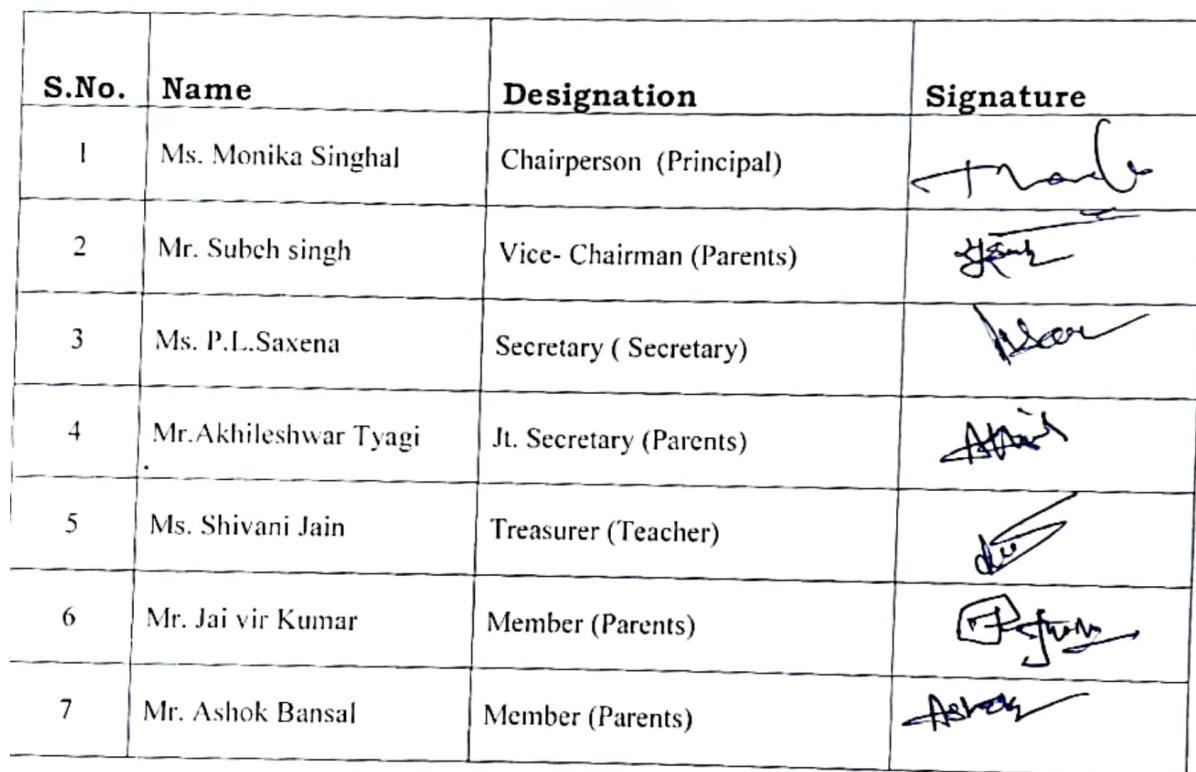 S.No. Name Designation Signature
1 Ms. Monika Singhal Chairperson (Principal)
2 Mr. Subeh singh Vice- Chairman (Parents)
3 Ms. P.L.Saxena Secretary ( Secretary)
4 Mr.Akhileshwar Tyagi Jt. Secretary (Parents)
5 Ms. Shivani Jain Treasurer (Teacher)
6 Mr. Jai vir Kumar Member (Parents)
7 Mr. Ashok Bansal Member (Parents) Ashok